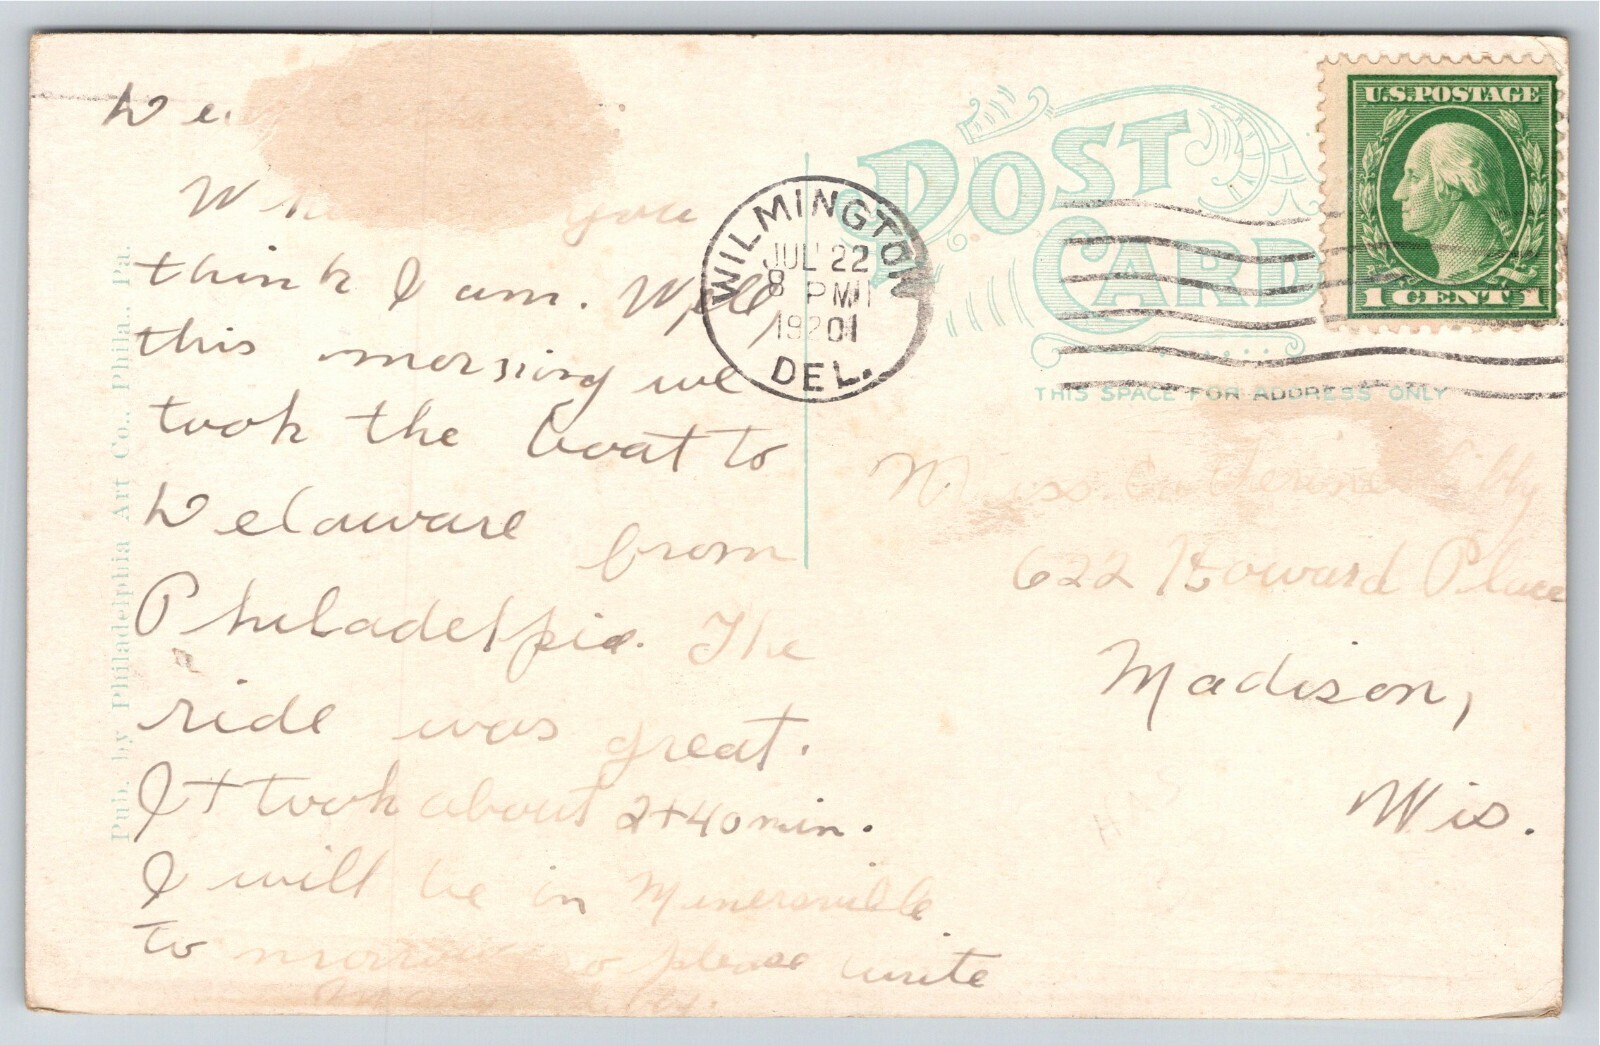 De
W you
think I am. Well
this morning we
took the boat to
Delaware from
Philadelpia. The
ride was great.
It took about 2+40 min.
I will be in Minersville
to morrow so please write
Pub. by Philadelphia Art Co., Phila., Pa.
POST CARD
THIS SPACE FOR ADDRESS ONLY
U.S. POSTAGE
1 CENT 1
WILMINGTON
JUL 22
8 PM
1920
DEL.
Miss Catherine Libby
622 Howard Place
Madison,
Wis.